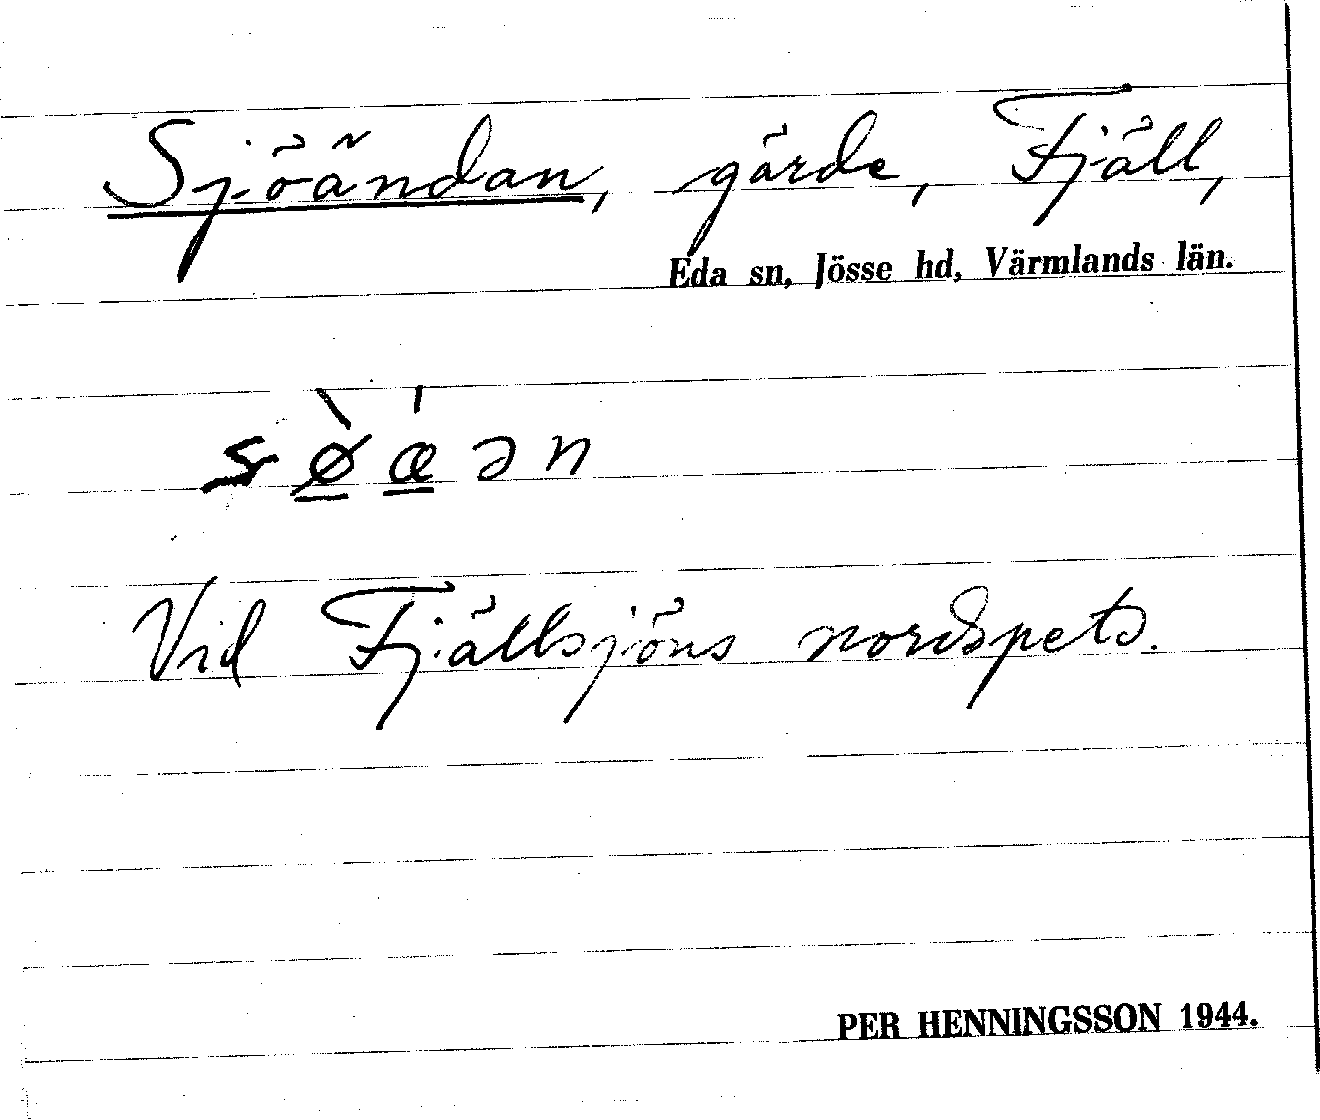 Sjöändan, gärde, Fjäll,
Eda sn, Jösse hd, Värmlands län.
Vid Fjällsjöns nordspets.
PER HENNINGSSON 1944.